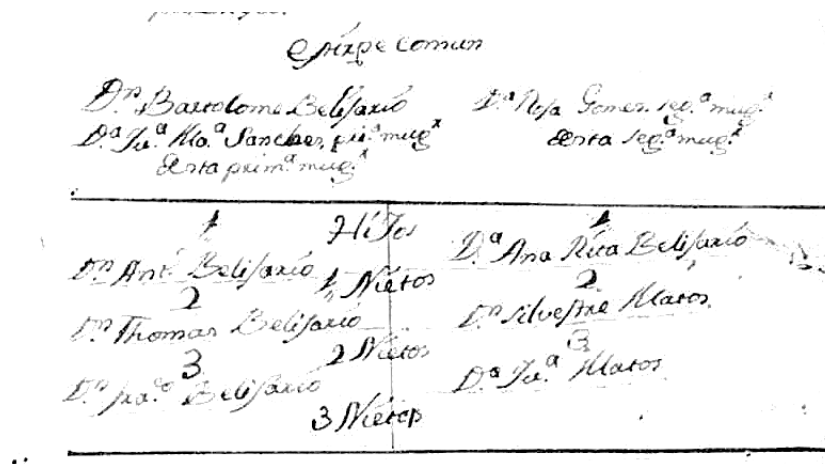 Estirpe comun
Dⁿ Bartolome Belisario
Dª Juª Maª Sanches, priª mugʳ
De esta primª mugʳ
Dª Rosa Gomes segª mugʳ
De esta segª mugʳ
Hijos
1
Dⁿ Antº Belisario
2
Dⁿ Thomas Belisario
3
Dⁿ Franº Belisario
1 Nietos
2 Nietos
3 Nietos
1
Dª Ana Rita Belisario
2
Dⁿ Silvestre Matos
3
Dª Juª Matos